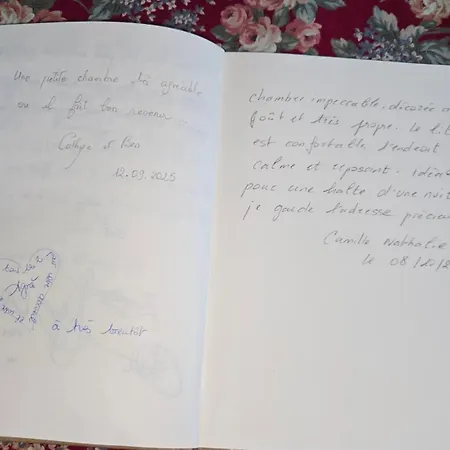 Une petite chambre très agréable
ou il fait bon revenir...
et Ben
12.09.2025
à très bientôt
chambre impeccable, décorée a
goût et très propre. Le lit
est confortable. L'endroit
calme et reposant. idéa
pour une halte d'une nuit
je garde l'adresse précieu
Camille Nathalie
le 08/10/2